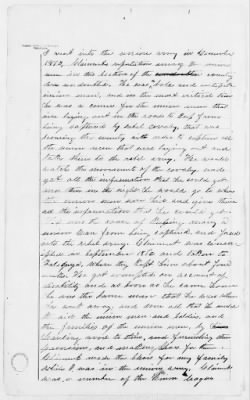 I went into the union army in December
1862, Clements reputation among the union
men in this section of the country
was undoubted. He was, bold and outspoken
union man, and in the most critical time
he was a courier for the union men that
are laying out in the woods to keep from
being captured by rebel cavalry, that was
scouring the county with order to capture all
the union men that are laying out and
take them to the rebel army. He would
watch the movements of the cavalry and
get all the information that he could get
and then in the night he would go to where
the union men was hid and give them
all the information that he could get.
the means of saving many a
union man from being captured and forced
into the rebel army. Clement was
in September 186 and taken to
when they kept him about
He got on account of
disability and as soon as he came home
he was the same man that he was when
he went away, and done all that he could
to aid the union men and soldiers, and
the families of the union men, by
hauling wood to them, and furnishing them
provisions, and making shoes for them
Clement made the shoes for my family
while I was in the union army. Clement
was a member of the Union League